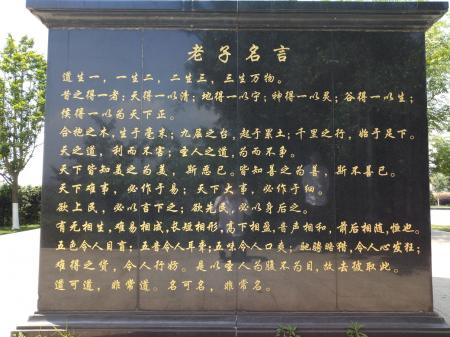 老子名言
道生一，一生二，二生三，三生万物。
昔之得一者：天得一以清；地得一以宁；神得一以灵；谷得一以生；
侯得一以为天下正。
合抱之木，生于毫末；九层之台，起于累土；千里之行，始于足下。
天之道，利而不害；圣人之道，为而不争。
天下皆知美之为美，斯恶已。皆知善之为善，斯不善已。
天下难事，必作于易；天下大事，必作于细。
欲上民，必以言下之；欲先民，必以身后之。
有无相生，难易相成，长短相形，高下相盈，音声相和，前后相随，恒也。
五色令人目盲；五音令人耳聋；五味令人口爽；驰骋畋猎，令人心发狂；
难得之货，令人行妨。是以圣人为腹不为目，故去彼取此。
道可道，非常道。名可名，非常名。